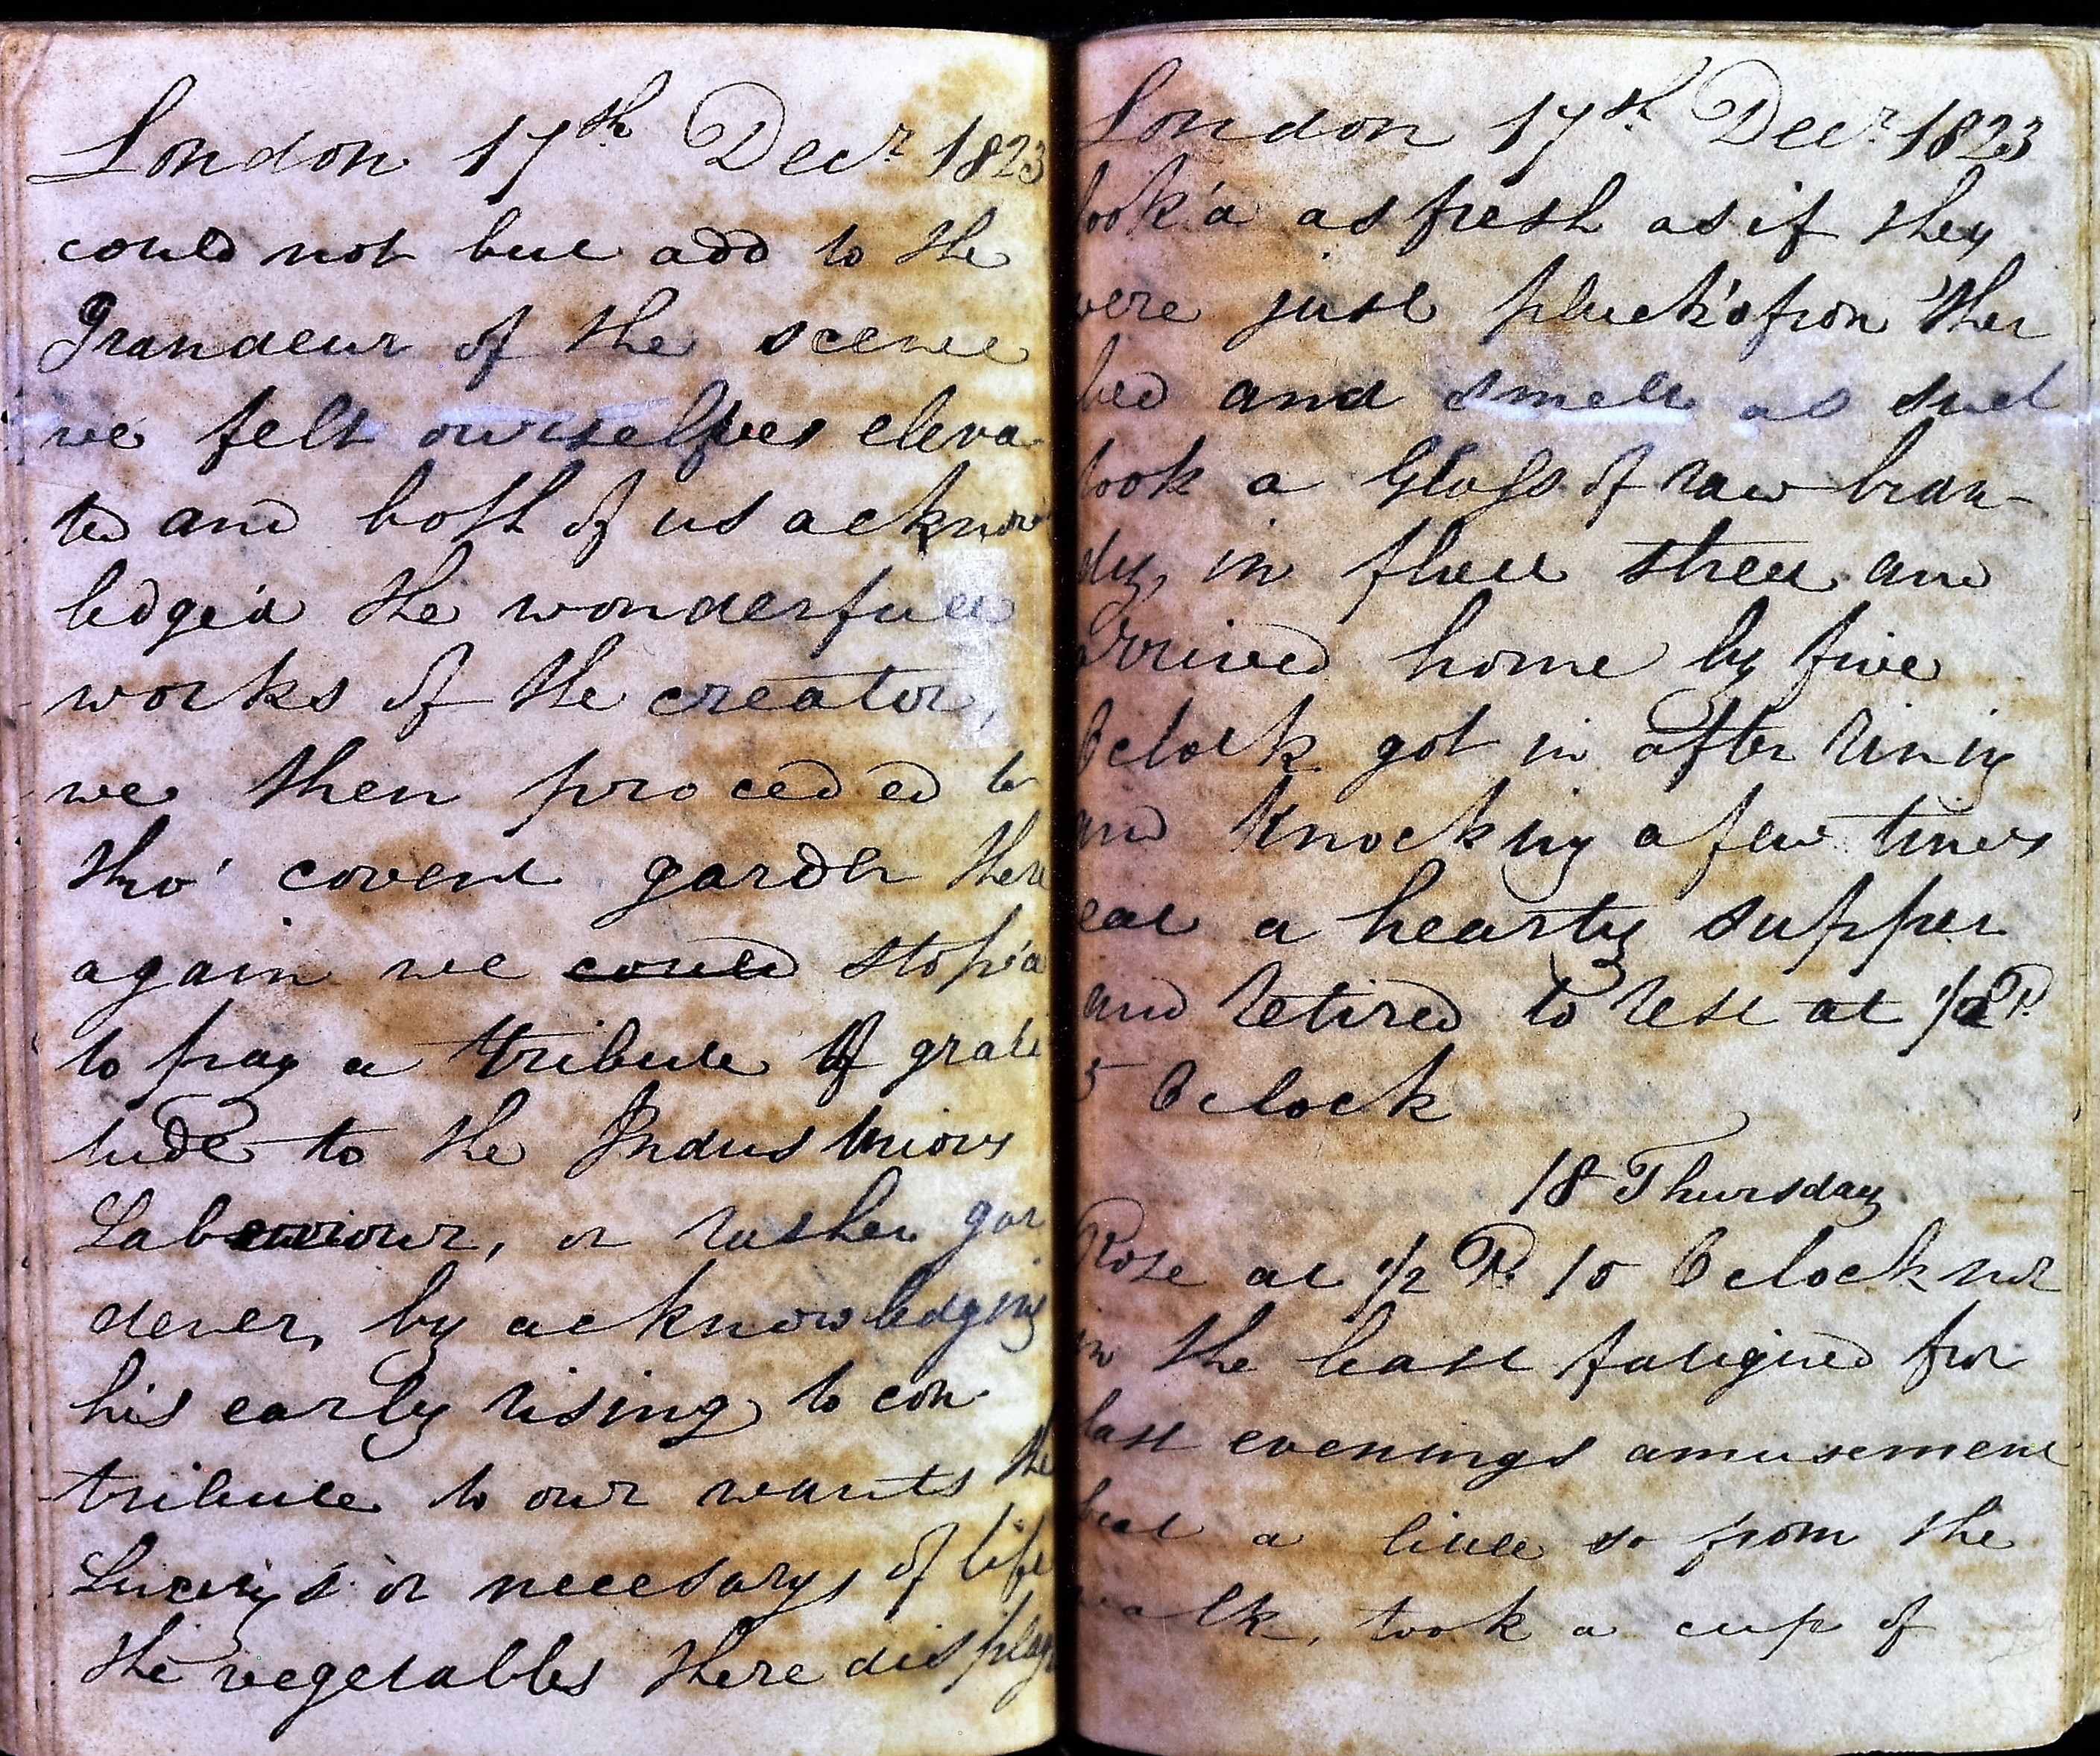 London 17th Decr 1823
could not but add to the
Grandeur of the scene
we felt ourselves eleva
ted and both of us acknow
ledge'd the wonderfull
works of the creator,
we then proceded to
thro' covent garden there
again we could stop'd
to pay a tribute of grati
tude to the Industrious
Labourer, or rather gar
dener, by acknowledging
his early rising to con
tribute to our wants the
Luxerys or necessarys of life
the vegetables there display
London 17th Decr 1823
look'd as fresh as if they
were just pluck'd from ther
bed and smelt as such
took a Glass of raw bran-
dy, in fleet street and
arrived home by five
Oclock got in after Rining
and Knocking a few times
eat a hearty supper
and retired to rest at 1/2 P.
5 Oclock
18 Thursday
Rose at 1/2 P. 10 Oclock not
in the least fatigued from
last evenings amusement
but a little so from the
walk, took a cup of